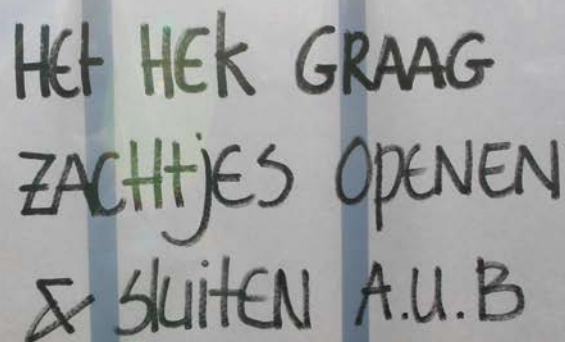 HEt HEk GRAAG
ZACHtjES OpENEN
& sluitEN A.U.B